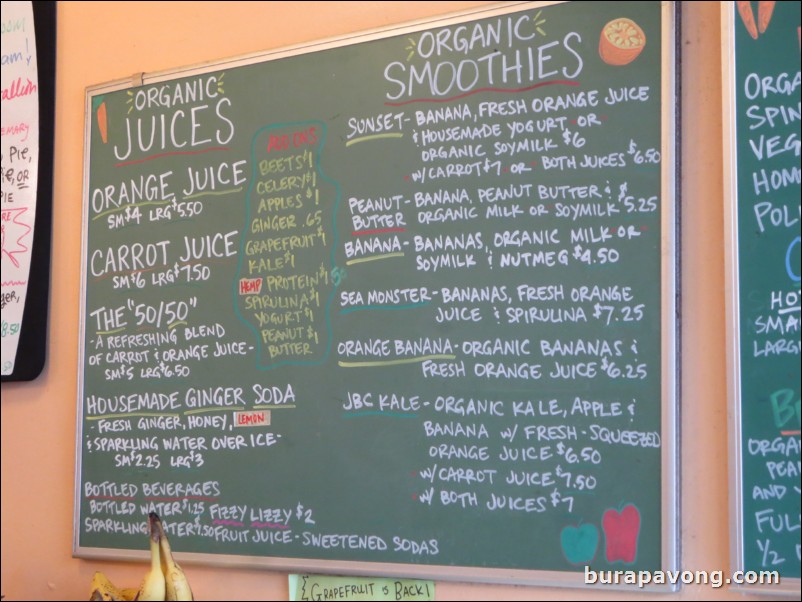 ORGANIC
JUICES
ORANGE JUICE
SM $4 LRG $5.50
CARROT JUICE
SM $6 LRG $7.50
THE "50/50"
- A REFRESHING BLEND
OF CARROT & ORANGE JUICE -
SM $5 LRG $6.50
HOUSEMADE GINGER SODA
- FRESH GINGER, HONEY, LEMON
& SPARKLING WATER OVER ICE -
SM $2.25 LRG $3
BOTTLED BEVERAGES
BOTTLED WATER $1.25 FIZZY LIZZY $2
SPARKLING WATER $1.50 FRUIT JUICE - SWEETENED SODAS
ADD-ONS
BEETS $1
CELERY $1
APPLES $1
GINGER .65
GRAPEFRUIT $1
KALE $1
HEMP PROTEIN $1.50
SPIRULINA $1
YOGURT $1
PEANUT $1
BUTTER
ORGANIC
SMOOTHIES
SUNSET - BANANA, FRESH ORANGE JUICE
& HOUSEMADE YOGURT - OR -
ORGANIC SOYMILK $6
- W/CARROT $7 - OR - BOTH JUICES $6.50
PEANUT- BANANA, PEANUT BUTTER &
BUTTER ORGANIC MILK OR SOYMILK $5.25
BANANA - BANANAS, ORGANIC MILK - OR -
SOYMILK & NUTMEG $4.50
SEA MONSTER - BANANAS, FRESH ORANGE
JUICE & SPIRULINA $7.25
ORANGE BANANA - ORGANIC BANANAS &
FRESH ORANGE JUICE $6.25
JBC KALE - ORGANIC KALE, APPLE &
BANANA W/ FRESH-SQUEEZED
ORANGE JUICE $6.50
- W/CARROT JUICE $7.50
- W/ BOTH JUICES $7
GRAPEFRUIT is BACK!
PIE,
OR
PIE
ORGA
SPIN
VEG
HOM
POL
SMA
LARG
ORGA
PEA
AND
FUL
1/2
burapavong.com